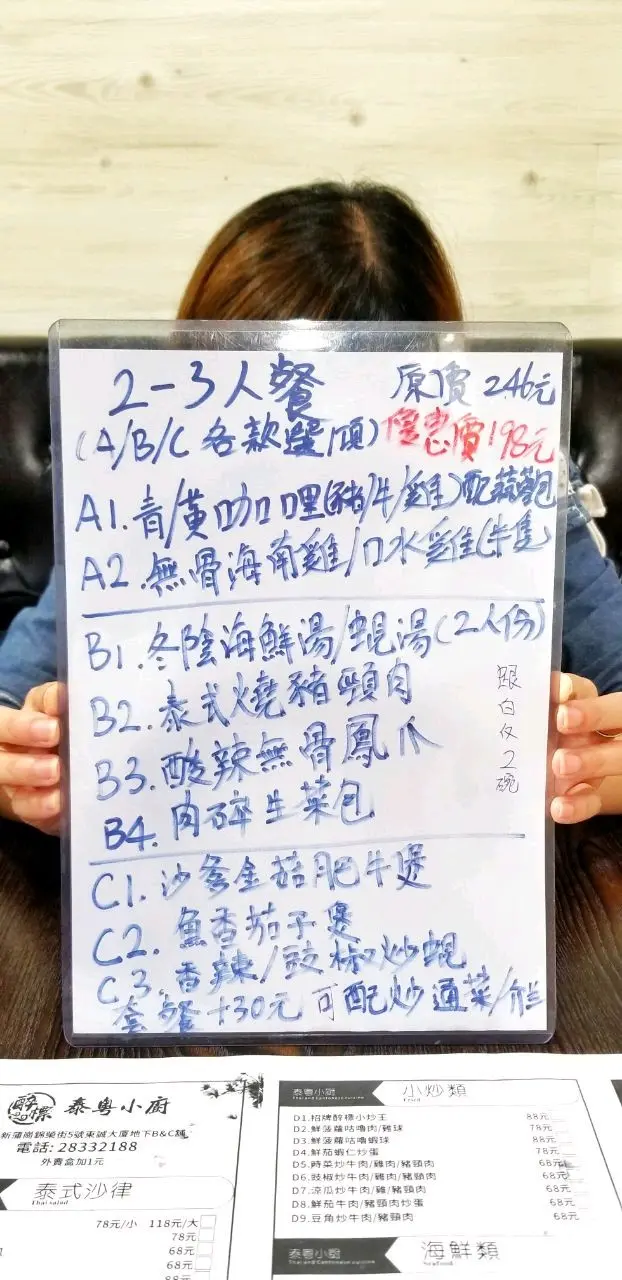 2-3人餐 原價246元
(A/B/C 各款選1項) 優惠價198元
A1.青/黃咖喱(豬/牛/雞)配蒜蓉包
A2.無骨海南雞/口水雞(半隻)
B1.冬陰海鮮湯/蜆湯(2人份)
B2.泰式燒豬頸肉
B3.酸辣無骨鳳爪
B4.肉碎生菜包
跟白仮2碗
C1.沙爹金菇肥牛煲
C2.魚香茄子煲
C3.香辣/豉椒炒蜆
套餐+30元可配炒通菜/介兰
醉標 泰粵小廚
新蒲崗錦榮街5號東誠大廈地下B&C舖
電話: 28332188
外賣盒加1元
泰式沙律
Thai salad
78元/小 118元/大
78元
68元
68元
88元
泰粵小廚 小炒類
Thai and Cantonese cuisine Fried
D1.招牌醉標小炒王 88元
D2.鮮菠蘿咕嚕肉/雞球 78元
D3.鮮菠蘿咕嚕蝦球 88元
D4.鮮茄蝦仁炒蛋 78元
D5.時菜炒牛肉/雞肉/豬頸肉 68元
D6.豉椒炒牛肉/雞肉/豬頸肉 68元
D7.涼瓜炒牛肉/雞/豬頸肉 68元
D8.鮮茄牛肉/豬頸肉炒蛋 68元
D9.豆角炒牛肉/豬頸肉 68元
泰粵小廚 海鮮類
Thai and Cantonese cuisine Seafood